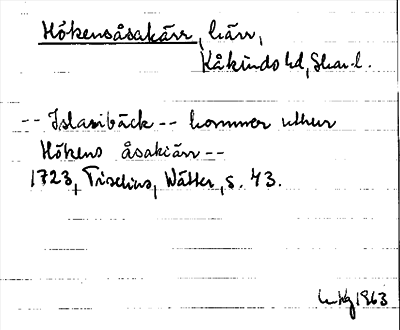 Hökensåsakärr, kärr,
Kåkinds hd, Skar. l.
-- Islasibäck -- kommer uthur
Hökens åsakiärr --
1723, Tiselius, Wätter, s. 43.
1963